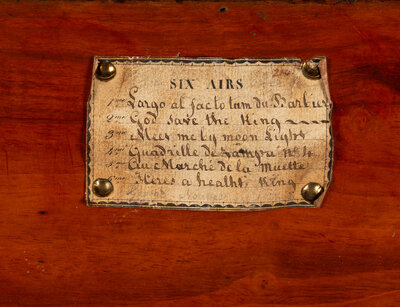 SIX AIRS
1me Largo al factotum du Barbier
2me God save the King
3me Meet me by moon light
4me Quadrille de Zampa No 4
5me Au Marché de la Muette
6me Heres a health King